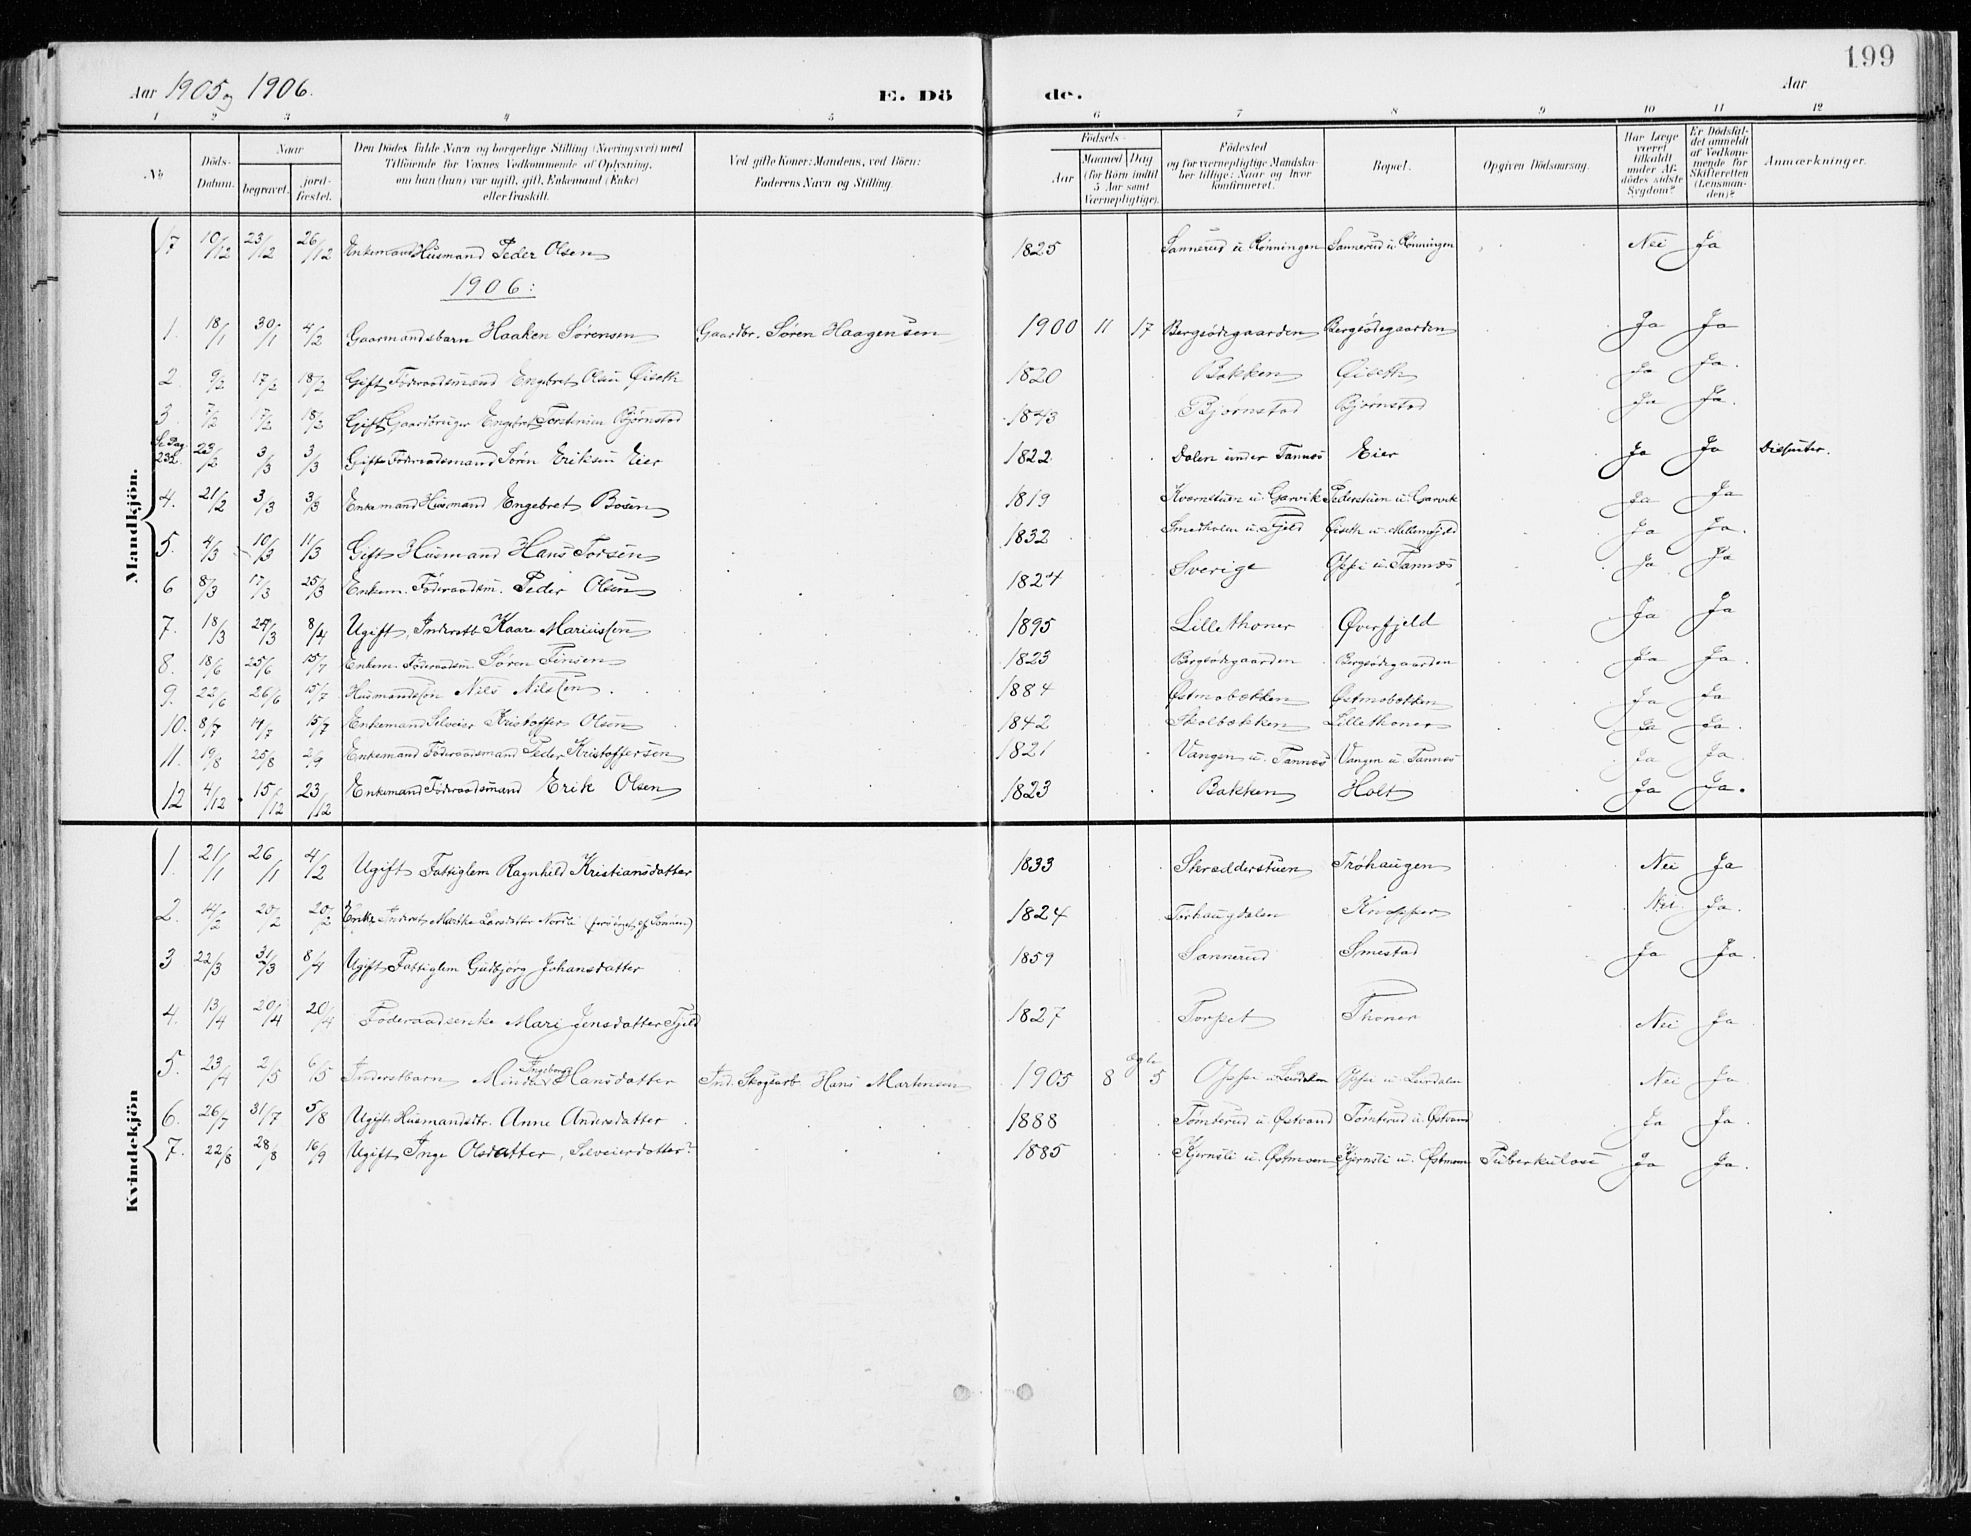 199
Aar 1905 og 1906.
E. Dö de.
Aar
1 2 3 4 5 6 7 8 9 10 11 12
No
Döds-Datum.
Naar
begravet.
jord-fæstet.
Den Dödes fulde Navn og borgerlige Stilling (Næringsvei) med Tilföiende for Voxnes Vedkommende af Oplysning, om han (hun) var ugift, gift, Enkemand (Enke) eller fraskilt.
Ved gifte Koner: Mandens, ved Börn: Faderens Navn og Stilling.
Födsels-
Aar
Maaned Dag (for Börn indtil 5 Aar samt Værnepligtige).
Födested og for værnepligtige Mandskaber tillige: Naar og hvor konfirmeret.
Bopæl.
Opgiven Dödsaarsag.
Har Læge været tilkaldt under Afdödes sidste Sygdom?
Er Dödsfaldet anmeldt af Vedkommende for Skifteretten (Lensmanden)?
Anmærkninger.
Mandkjön.
17 10/12 23/12 26/12 Enkemand Husmand Peder Olsen 1825 Sannerud u Rønningen Sannerud u Rønningen Nei Ja
1906:
1. 18/1 30/1 4/2 Gaarmandsbarn Haaken Sørensen Gaardbr. Søren Haagensen 1900 11 17 Bergsödegaarden Bergsödegaarden Ja Ja
2 9/2 17/2 18/2 Gift Föderaadsmand Engebret Olsen Øiseth 1820 Bakken Øiseth Ja Ja.
3. 7/2 17/2 18/2 Gift Gaardbruger Engebret Torstensen Bjørnstad 1843 Bjørnstad Bjørnstad Ja Ja.
Se Pag 232. 23/2 3/3 3/3 Gift Föderaadsmand Sørn Eriksen Eier 1822 Dalen under Tannæs Eier Ja Ja Dissenter.
4. 21/2 3/3 3/3 Enkemand Husmand Engebret Bosen 1819 Kvernstuen u. Garvik Pederstuen u. Garvik Ja Ja
5. 4/3 10/3 11/3 Gift Husmand Hans Torsen 1832 Smedholen u. Fjeld Øiseth u. Mellemfjeld Ja Ja.
6 8/3 17/3 25/3 Enkem. Föderaadsm. Peder Olsen 1824 Sverige Oppi u. Tannæs Ja Ja
7. 18/3 24/3 8/4 Ugift, Inderstb Kaare Mariussen 1895 Lillethoner Øverfjeld Ja Ja
8. 18/6 25/6 15/7 Enkem. Föderaadsm Søren Finsen 1823 Bergsödegaarden Bergsödegaarden Ja Ja.
9. 22/6 26/6 15/7 Husmandssøn Nils Nilssen 1884 Østmobækken Østmobækken Ja Ja
10. 8/7 14/7 15/7 Enkemand Selveier Kristoffer Olsen 1842 Skolbækken Lillethoner Ja Ja.
11. 19/8 25/8 2/9 Enkemand Föderaadsmand Peder Kristoffersen 1821 Vangen u. Tannæs Vangen u. Tannæs Ja Ja
12 4/12 15/12 23/12 Enkemand Föderaadsmand Erik Olsen 1823 Bakken Holt Ja Ja.
Kvindekjön
1. 21/1 26/1 4/2 Ugift Fattiglem Ragnhild Kristiansdatter 1833 Skrædderstuen Trøhaugen Nei Ja
2. 14/2 20/2 20/2 Enke Inderst Marthe Larsdatter Nordli 1824 Torhaugdalen Knapper Nei Ja.
3 22/3 31/3 8/4 Ugift Fattiglem Gudbjørg Johansdatter 1859 Sannerud Smestad Ja Ja.
4. 13/4 20/4 20/4 Föderaadsenke Mari Jensdatter Fjeld 1827 Torpet Thoner Nei Ja
5. 23/4 2/5 6/5 Inderstbarn Minda Ingeborg Hansdatter Ind. Skogsarb. Hans Martinsen 1905 8 5 Oppi u Leirdalen Oppi u Leirdalen Nei Ja
6. 26/7 31/7 5/8 Ugift Husmandsdtr. Anne Andersdatter 1888 Tømterud u. Østvand Tømterud u. Østvand Ja Ja.
7. 22/8 28/8 16/9 Ugift Inge Olsdatter, Selveierdatter? 1885 Kjernsli u. Østmoen Kjernsli u. Østmoen Tuberkulose Ja Ja.